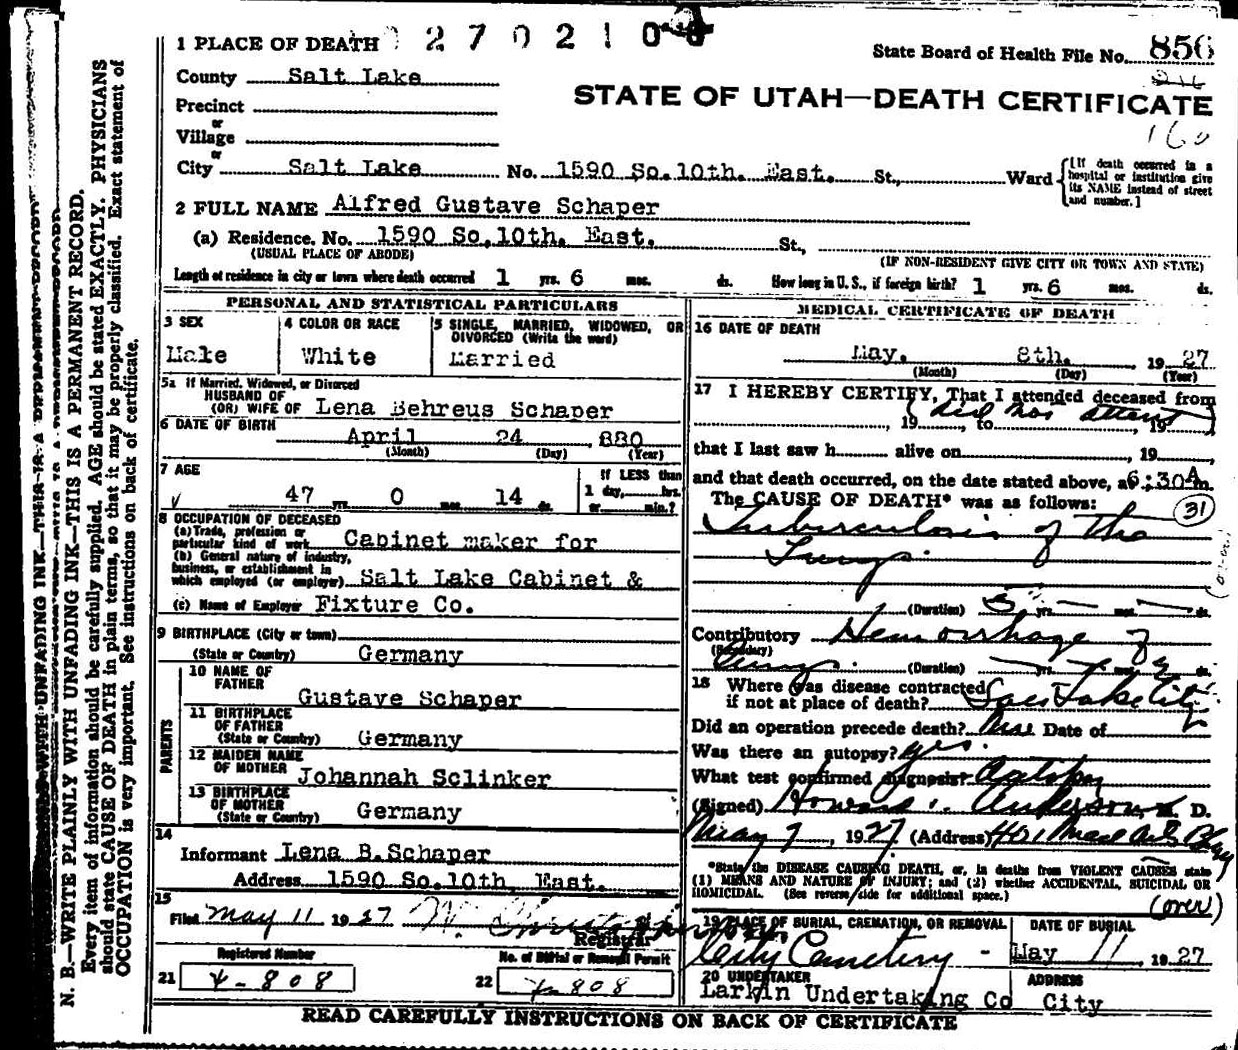 N. B.—WRITE PLAINLY WITH UNFADING INK—THIS IS A PERMANENT RECORD.
Every item of information should be carefully supplied. AGE should be stated EXACTLY. PHYSICIANS
should state CAUSE OF DEATH in plain terms, so that it may be properly classified. Exact statement of
OCCUPATION is very important. See instructions on back of certificate.
1 PLACE OF DEATH 2702100
State Board of Health File No. 856
County Salt Lake
STATE OF UTAH—DEATH CERTIFICATE
160
Precinct
or
Village
or
City Salt Lake No. 1590 So.10th. East. St., Ward
[If death occurred in a
hospital or institution give
its NAME instead of street
and number.]
2 FULL NAME Alfred Gustave Schaper
(a) Residence. No. 1590 So.10th. East. St.,
(USUAL PLACE OF ABODE) (IF NON-RESIDENT GIVE CITY OR TOWN AND STATE)
Length of residence in city or town where death occurred 1 yrs. 6 mos. ds. How long in U. S., if foreign birth? 1 yrs. 6 mos. ds.
PERSONAL AND STATISTICAL PARTICULARS
3 SEX 4 COLOR OR RACE 5 SINGLE, MARRIED, WIDOWED, OR
DIVORCED (Write the word)
Male White Married
5a If Married, Widowed, or Divorced
HUSBAND OF
(OR) WIFE OF Lena Behreus Schaper
6 DATE OF BIRTH
April 24 , 880
(Month) (Day) (Year)
7 AGE
If LESS than
47 yrs. 0 mos. 14 ds. 1 day, hrs.
or min.?
8 OCCUPATION OF DECEASED
(a) Trade, profession or
particular kind of work Cabinet maker for
(b) General nature of industry,
business, or establishment in
which employed (or employer) Salt Lake Cabinet &
(c) Name of Employer Fixture Co.
9 BIRTHPLACE (City or town)
(State or Country) Germany
PARENTS
10 NAME OF
FATHER
Gustave Schaper
11 BIRTHPLACE
OF FATHER
(State or Country) Germany
12 MAIDEN NAME
OF MOTHER Johannah Sclinker
13 BIRTHPLACE
OF MOTHER
(State or Country) Germany
14
Informant Lena B.Schaper
Address 1590 So.10th East.
15
Filed May 11 1927
Registrar
Registered Number No. of Burial or Removal Permit
21 4-808 22 4-808
MEDICAL CERTIFICATE OF DEATH
16 DATE OF DEATH
May. 8th. 1927
(Month) (Day) (Year)
17 I HEREBY CERTIFY, That I attended deceased from
(did not attend)
, 19 , to , 19
that I last saw h alive on , 19 ,
and that death occurred, on the date stated above, at 6:30 A m.
The CAUSE OF DEATH* was as follows: 31
Tuberculosis of the
Lungs.
(Duration) 5 yrs. — mos. — ds.
Contributory Hemorrhage of
(Secondary)
Lungs. (Duration) yrs. mos. ds.
18 Where was disease contracted
if not at place of death? Salt Lake City
Did an operation precede death? Date of
Was there an autopsy? yes.
What test confirmed diagnosis? Autopsy
(Signed) Anderson, M. D.
May 9, 1927 (Address) 401 Med Arts Bldg
*State the DISEASE CAUSING DEATH, or, in deaths from VIOLENT CAUSES state
(1) MEANS AND NATURE OF INJURY; and (2) whether ACCIDENTAL, SUICIDAL OR
HOMICIDAL. (See reverse side for additional space.)
(over)
19 PLACE OF BURIAL, CREMATION, OR REMOVAL DATE OF BURIAL
City Cemetery - May 11 1927
20 UNDERTAKER ADDRESS
Larkin Undertaking Co City
READ CAREFULLY INSTRUCTIONS ON BACK OF CERTIFICATE